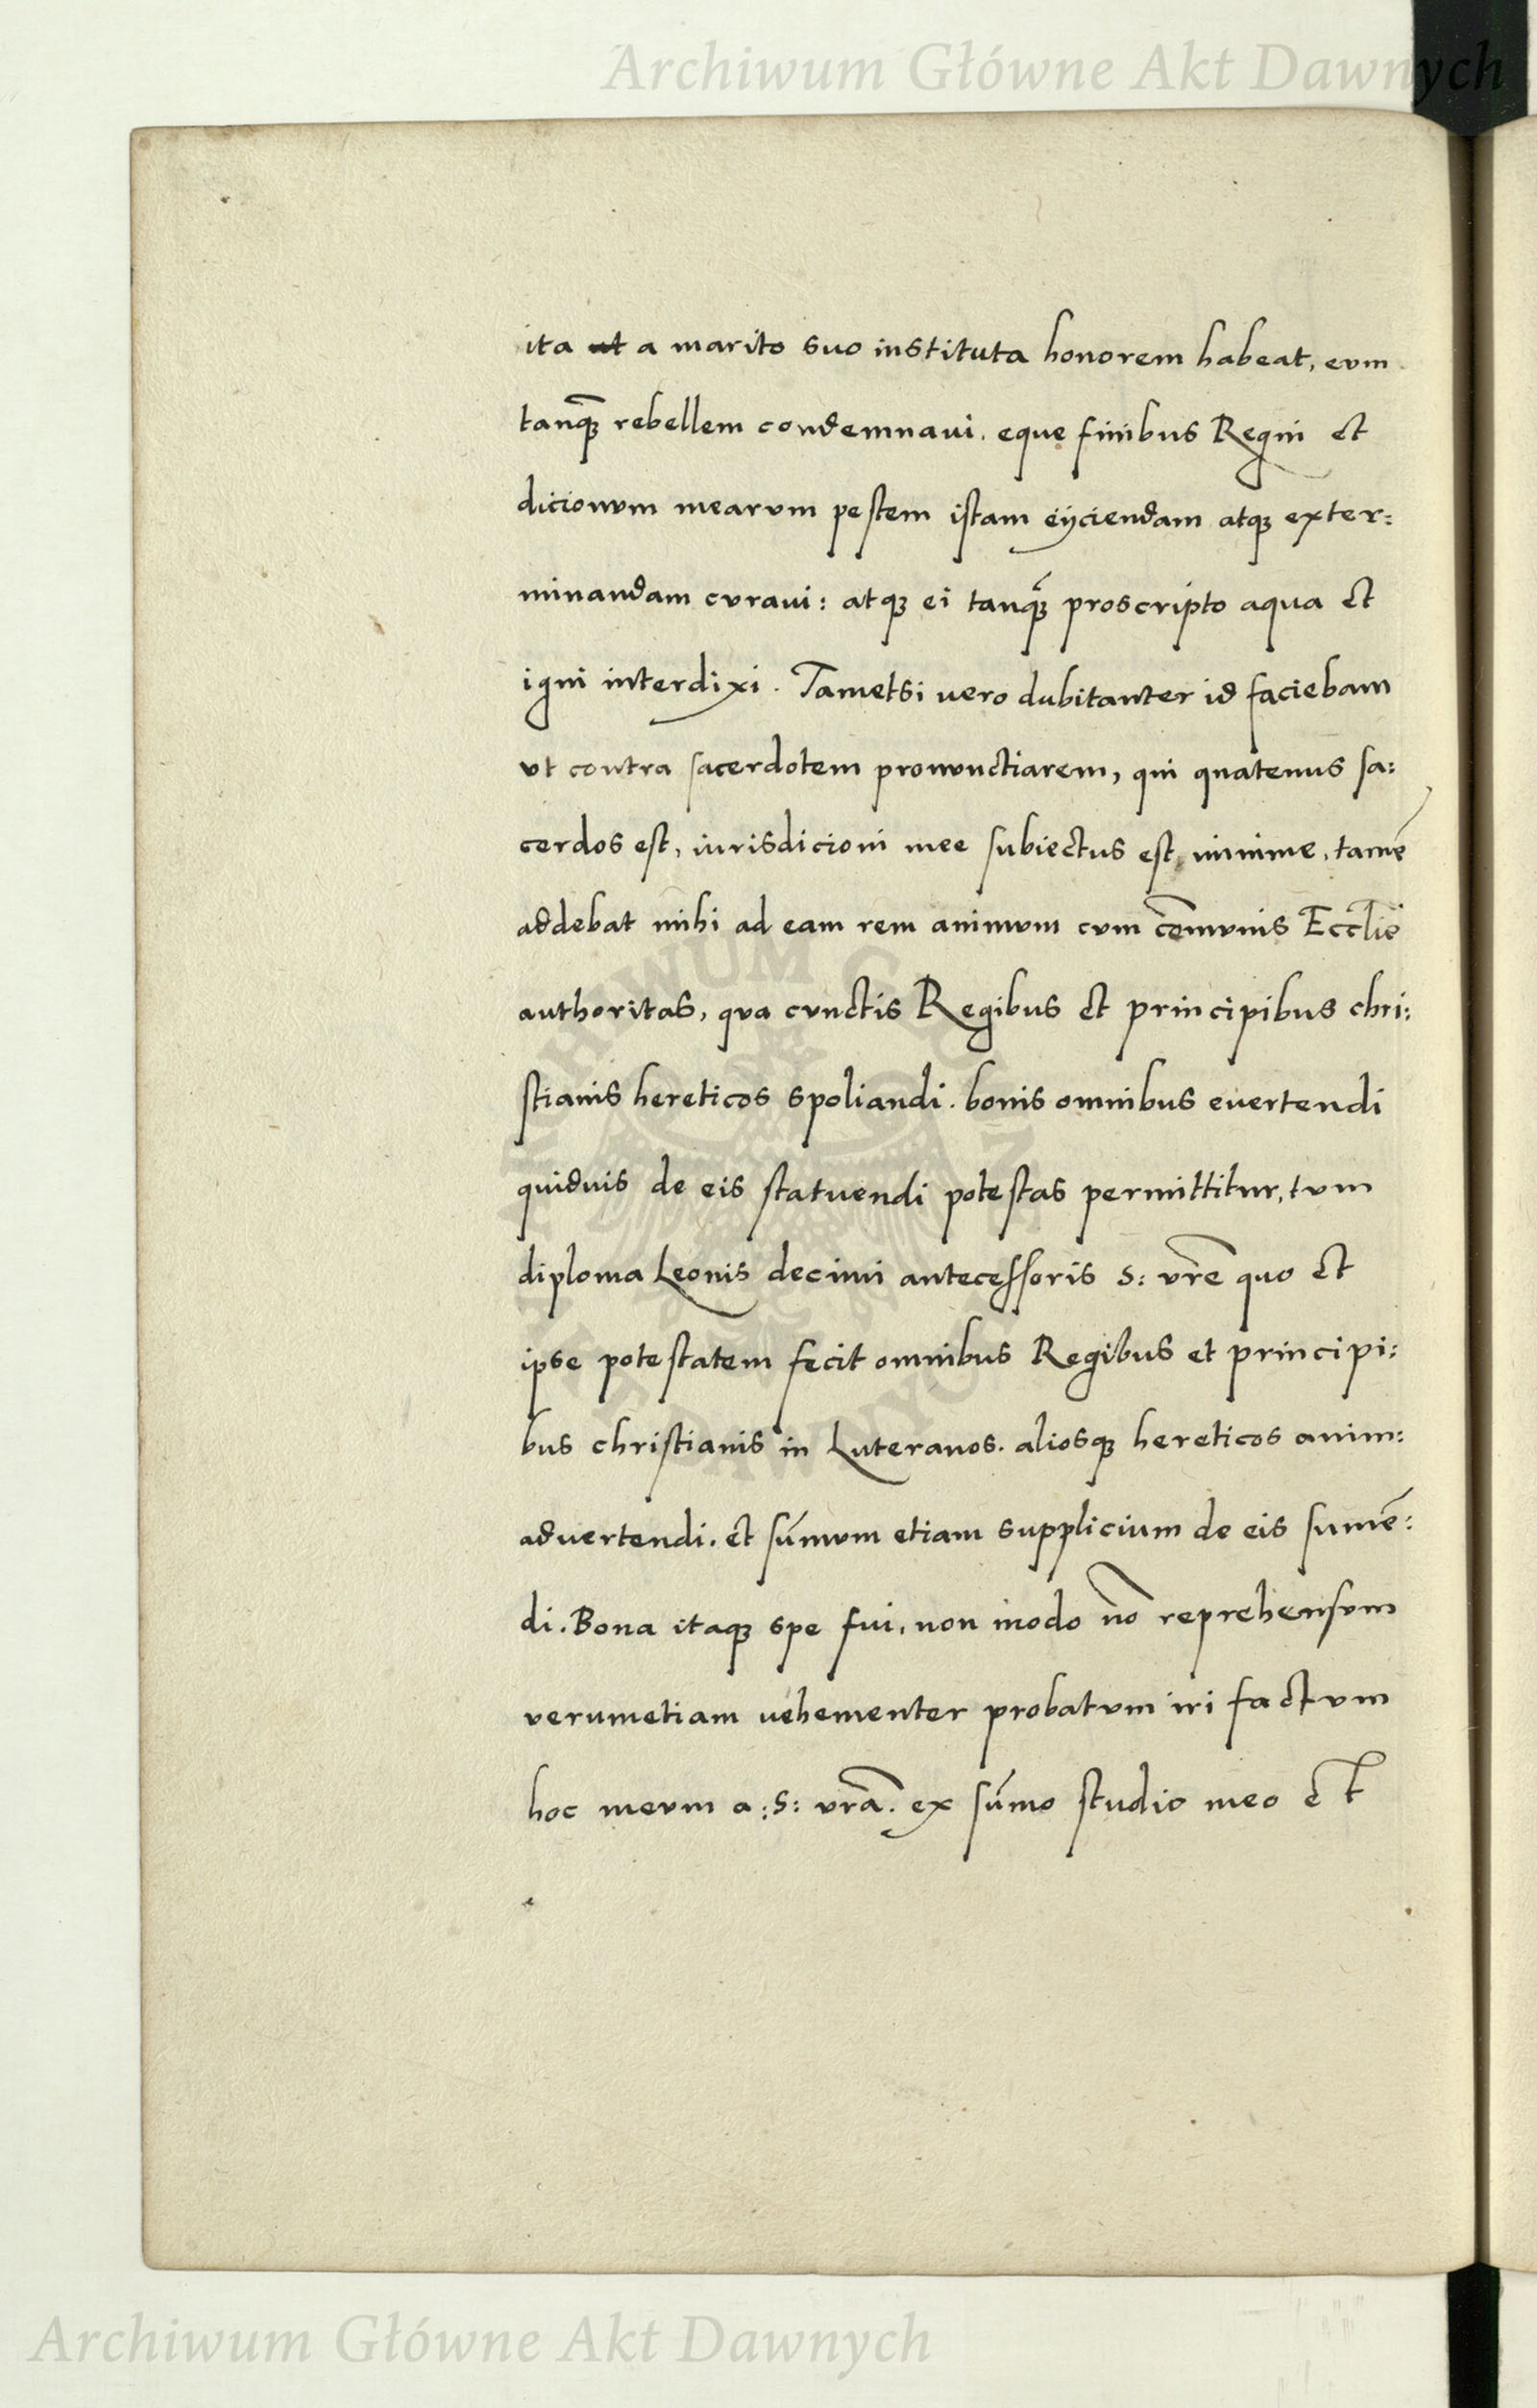 Archiwum Główne Akt Dawnych
ita ut a marito suo instituta honorem habeat, eum
tanq̃ʒ rebellem condemnaui. eque finibus Regni et
dicionum mearum pestem istam eijciendam atqʒ exter:
minandam curaui: atqʒ ei tanq́ʒ proscripto aqua et
igni interdixi. Tametsi uero dubitanter id faciebam
vt contra sacerdotem pronunctiarem, qui quatenus sa:
cerdos est, iurisdicioni mee subiectus est minime, tamē
addebat mihi ad eam rem animum cum cōmunis Eccl̄ie
authoritas, qua cunctis Regibus et principibus chri:
stianis hereticos spoliandi. bonis omnibus euertendi
quiduis de eis statuendi potestas permittitur, tum
diploma Leonis decimi antecessoris S: vr̄e quo et
ipse potestatem fecit omnibus Regibus et principi:
bus christianis in Luteranos. aliosqʒ hereticos anim:
aduertendi. et sūmum etiam supplicium de eis sumē:
di. Bona itaqʒ spe fui, non modo nō reprehensum
verumetiam uehementer probatum iri factum
hoc meum a: S: vr̄a. ex sūmo studio meo et
Archiwum Główne Akt Dawnych